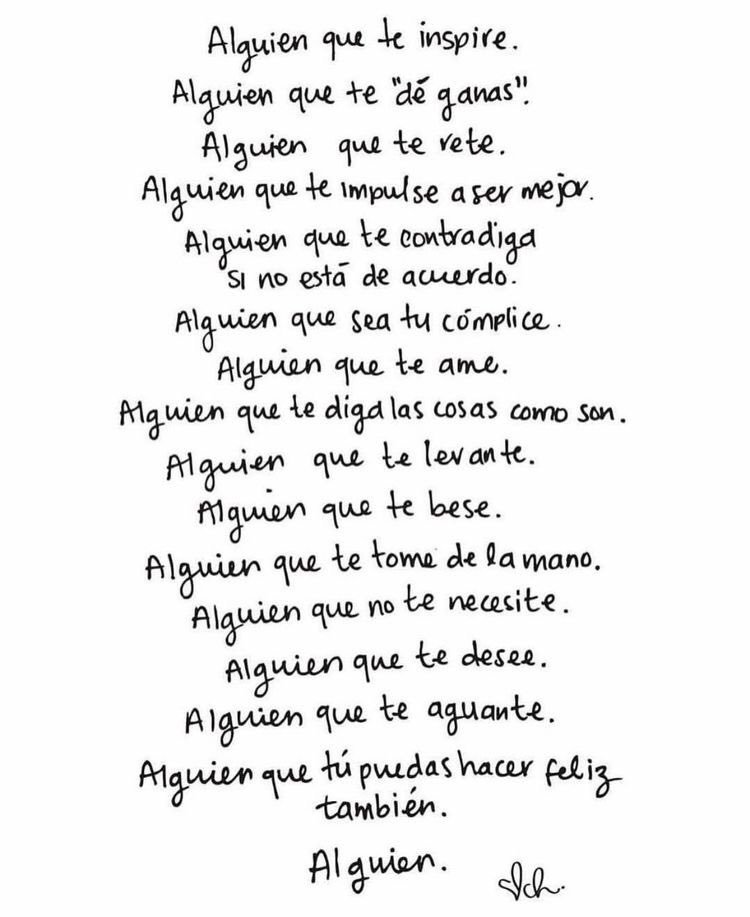 Alguien que te inspire.
Alguien que te "dé ganas".
Alguien que te rete.
Alguien que te impulse a ser mejor.
Alguien que te contradiga
si no está de acuerdo.
Alguien que sea tu cómplice.
Alguien que te ame.
Alguien que te diga las cosas como son.
Alguien que te levante.
Alguien que te bese.
Alguien que te tome de la mano.
Alguien que no te necesite.
Alguien que te desee.
Alguien que te aguante.
Alguien que tú puedas hacer feliz
también.
Alguien.